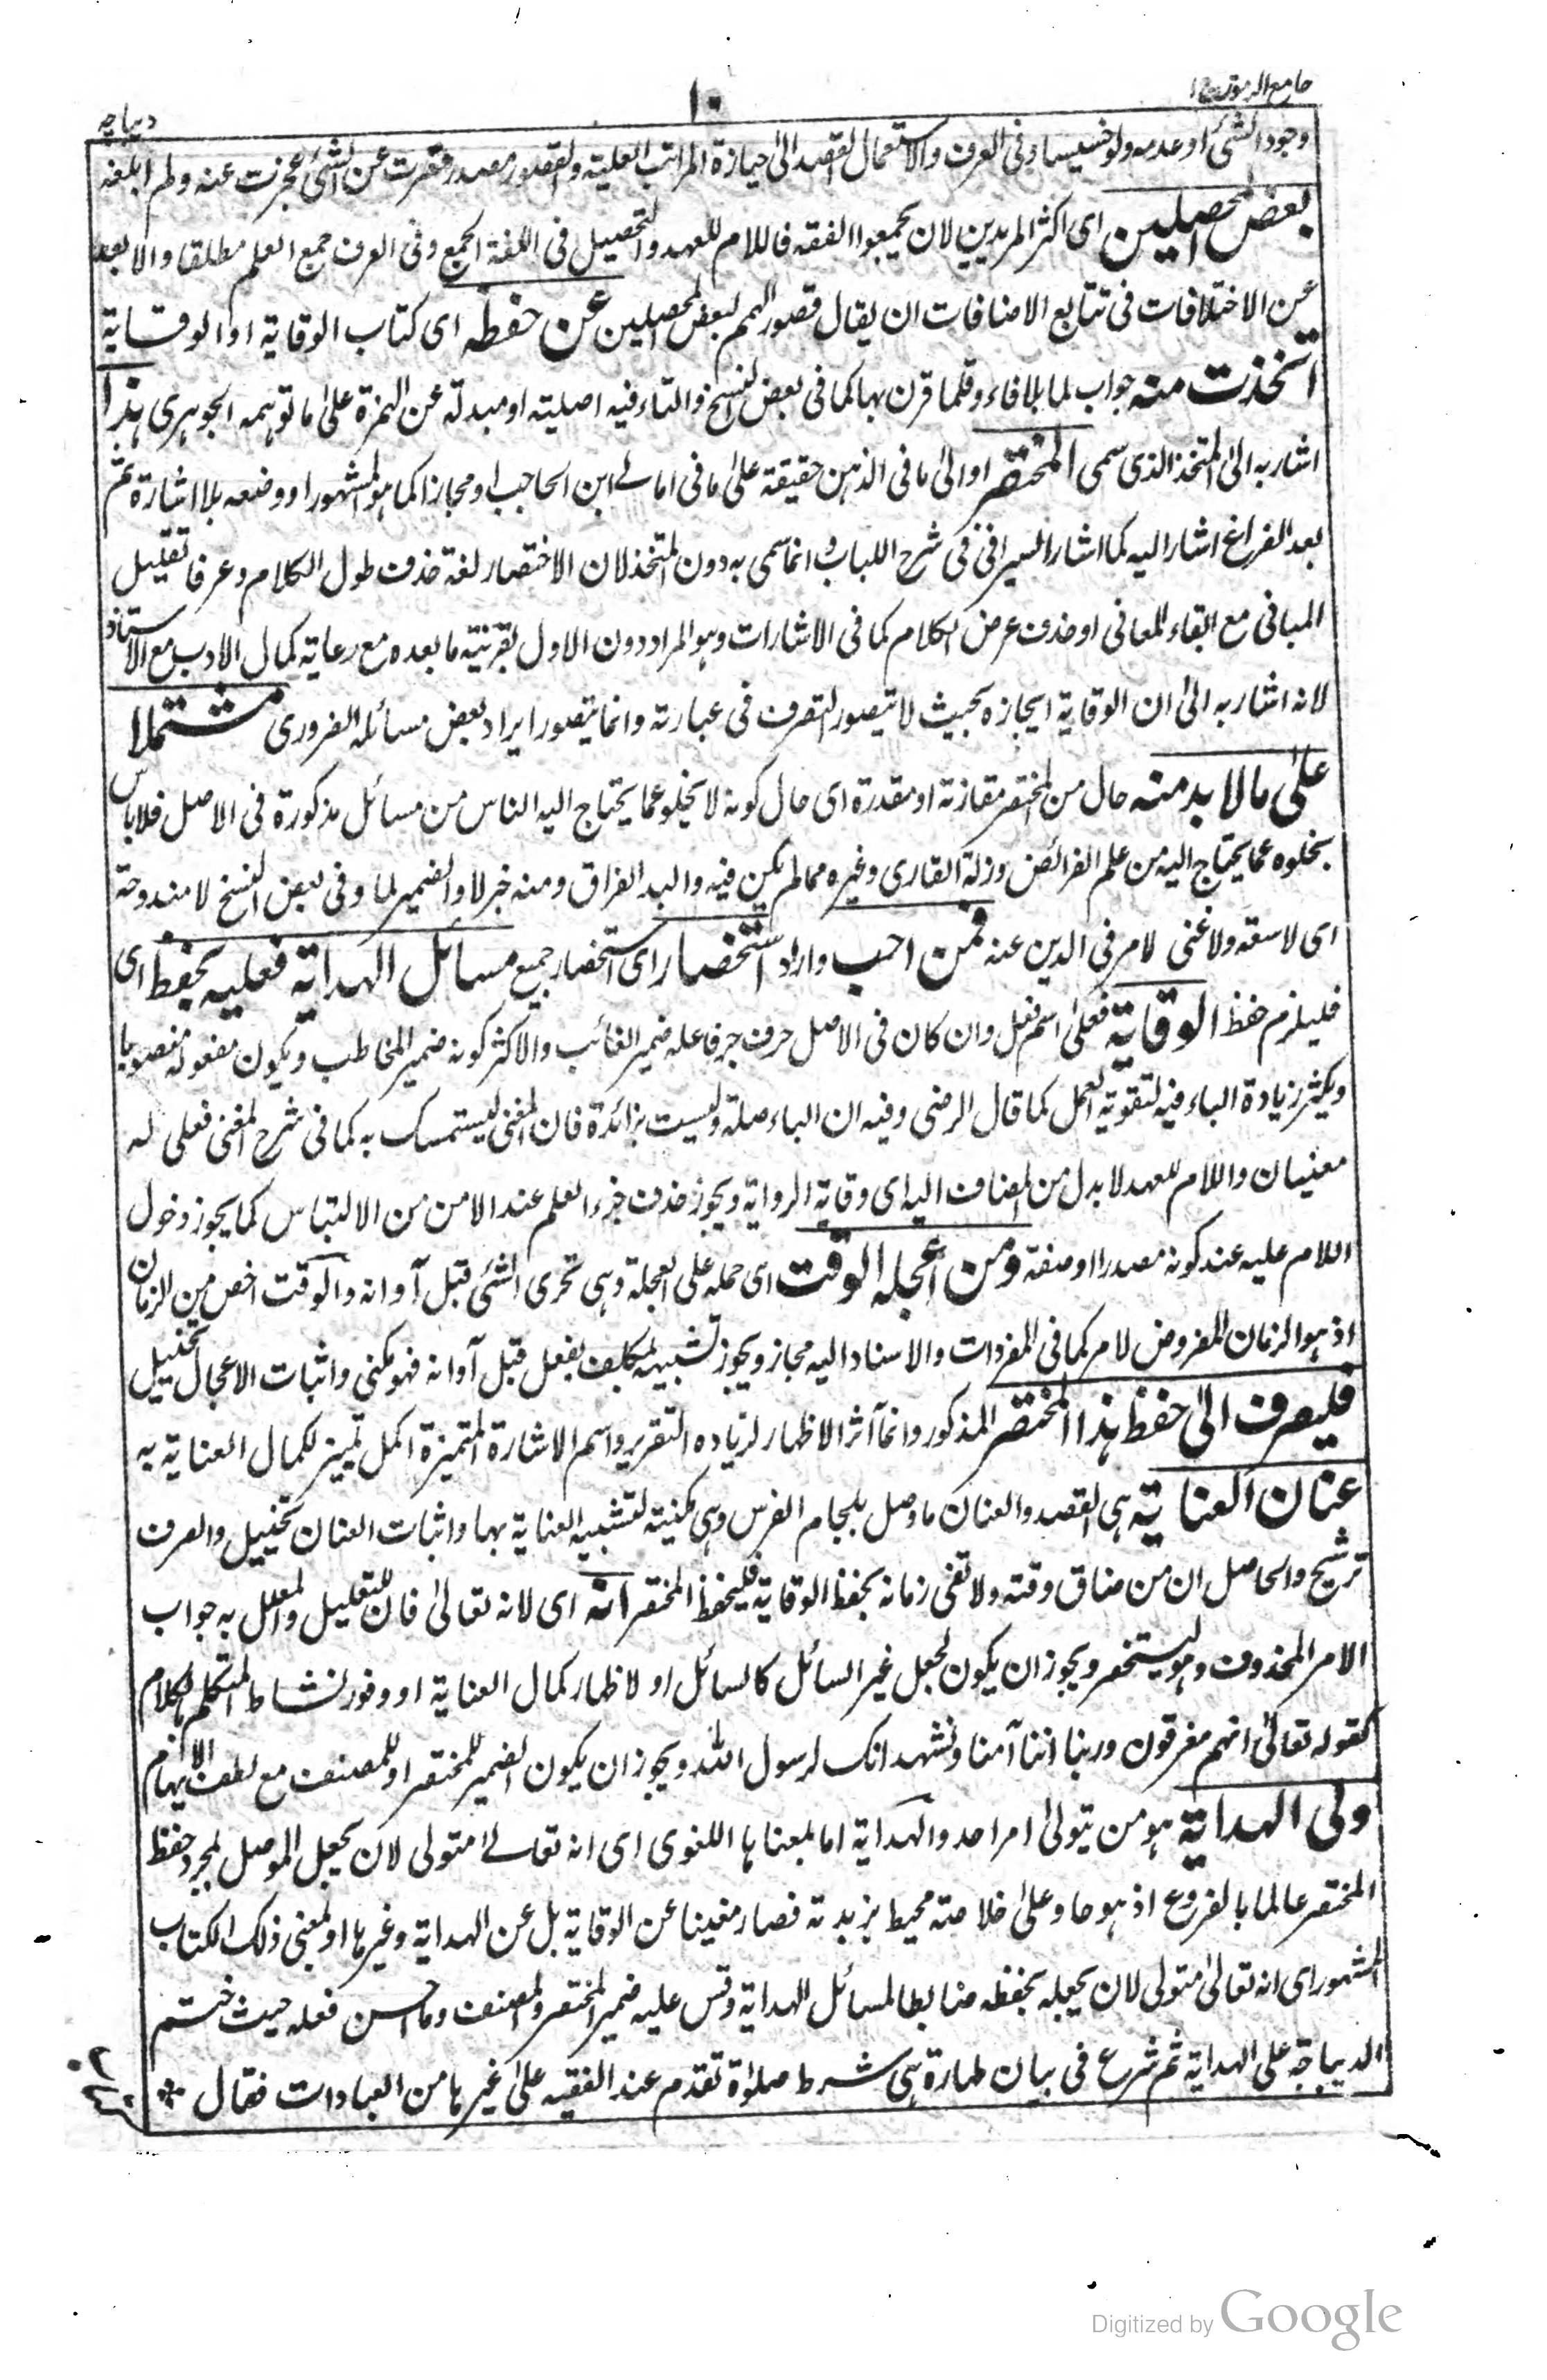 جامع الرموز ج١
١٠
ديباچه
وجود الشئ او عدمه ولو خسيسا وفى العرف والاستعمال القصد الى حيازة المراتب العلية والقصور مصدر قصرت عن الشئ اى عجزت عنه ولم ابلغه
بعض المحصلين اى اكثر المريدين لان يجمعوا الفقه فاللام للعهد والتحصيل فى اللغة الجمع وفى العرف جمع العلم مطلقا والا بعد
عن الاختلافات فى تتابع الاضافات ان يقال قصور الهمم لبعض المحصلين عن حفظه اى كتاب الوقاية او الوقاية
اتخذت منه جواب لما بلا فاء وقلما قرن بها كما فى بعض النسخ والتاء فيه اصلية او مبدلة عن الهمزة على ما توهمه الجوهرى هذا
اشار به الى المتخذ الذى سمى المختصر او الى ما فى الذهن حقيقة على ما فى امالى ابن الحاجب او مجازا كما هو المشهور او وضعه بلا اشارة ثم
بعد الفراغ اشار اليه كما اشار السيرافى فى شرح اللباب وانما سمى به دون المتخذ لان الاختصار لغة حذف طول الكلام وعرفا تقليل
المبانى مع ابقاء المعانى او حذف عرض الكلام كما فى الاشارات وهو المراد دون الاول بقرينة ما بعده مع رعاية كمال الادب مع الاستاذ
لانه اشار به الى ان الوقاية ايجازه بحيث لا يتصور التصرف فى عبارته وانما يتصور ايراد بعض مسائله الضرورى مشتملا
على ما لا بد منه حال من المختصر مقارنة او مقدرة اى حال كونه لا يخلو عما يحتاج اليه الناس من مسائل مذكورة فى الاصل فلا باس
بخلوه عما يحتاج اليه من علم الفرائض وزلة القارى وغيره مما لم يكن فيه والبد الفراق ومنه خبر لا والضمير لما وفى بعض النسخ لا مندوحة
اى لا سعة ولا غنى لامر فى الدين عنه فمن احب واراد استحضار اى استحضار جميع مسائل الهداية فعليه بحفظ اى
فليلزم حفظ الوقاية فعلى اسم فعل وان كان فى الاصل حرف جر فاعله ضمير الغائب والاكثر كونه ضمير المخاطب ويكون مفعوله منصوبا
ويكثر زيادة الباء فيه لتقوية العمل كما قال الرضى وفيه ان الباء صلة وليست بزائدة فان المعنى ليستمسك به كما فى شرح المغنى فعلى له
معنيان واللام للعهد لا بدل من المضاف اليه اى وقاية الرواية ويجوز حذف جزء العلم عند الامن من الالتباس كما يجوز دخول
اللام عليه عند كونه مصدرا او صفة ومن اعجله الوقت اى حمله على العجلة وهى تحرى الشئ قبل آوانه والوقت اخص من الزمان
اذ هو الزمان المفروض لامر كما فى المفردات والاسناد اليه مجاز ويجوز تشبيهه بمكلف بفعل قبل آوانه فهو مكنى واثبات الاعجال تخييل
فليصرف الى حفظ هذا المختصر المذكور وانما آثر الاظهار لزياده التقرير واسم الاشارة المتميزة اكمل تميز لكمال العناية به
عنان العناية هى القصد والعنان ما وصل بلجام الفرس وهى مكنية لتشبيه العناية بها واثبات العنان تخييل والصرف
ترشيح والحاصل ان من ضاق وقته ولا تفى زمانه بحفظ الوقاية فليحفظ المختصر انه اى لانه تعالى فان للتعليل والمعلل به جواب
الامر المحذوف وهو ليستحضر ويجوز ان يكون لجعل غير السائل كالسائل او لاظهار كمال العناية او وفور نشاط المتكلم بالكلام
كقوله تعالى انهم مغرقون وربنا اننا آمنا ونشهد انك لرسول الله ويجوز ان يكون الضمير للمختصر او للمصنف مع لطف الايهام
ولى الهداية هو من يتولى امر احد والهداية اما بمعناها اللغوى اى انه تعالى متولى لان يجعل الموصل لمجرد حفظ
المختصر عالما بالفروع اذ هو حاو على خلاصته محيط بزبدته فصار مغنيا عن الوقاية بل عن الهداية وغيرها او بمعنى ذلك الكتاب
المشهور اى انه تعالى متولى لان يجعله بحفظه ضابطا لمسائل الهداية وقس عليه ضمير المختصر والمصنف وما احسن فعله حيث ختم
الديباجة على الهداية ثم شرع فى بيان طهارة هى شرط صلوٰة تقدم عند الفقيه على غيرها من العبادات فقال *
Digitized by Google